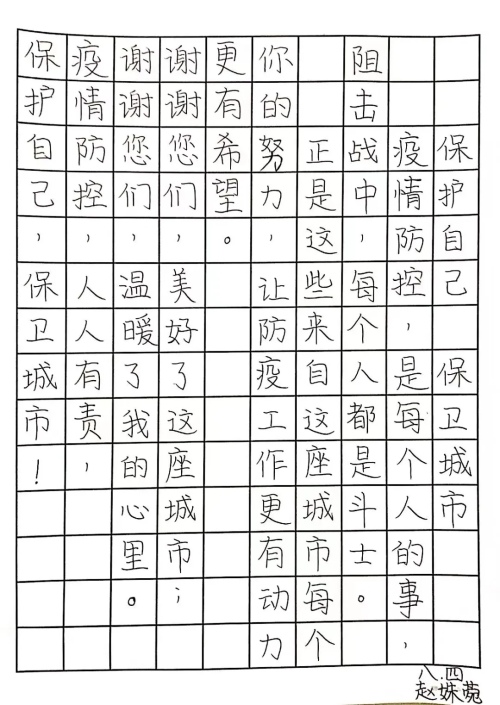 保护自己 保卫城市
疫情防控，是每个人的事，
阻击战中，每个人都是斗士。
正是这些来自这座城市每个
你的努力，让防疫工作更有动力
更有希望。
谢谢您们，美好了这座城市；
谢谢您们，温暖了我的心里。
疫情防控，人人有责，
保护自己，保卫城市！
八.四
赵姝